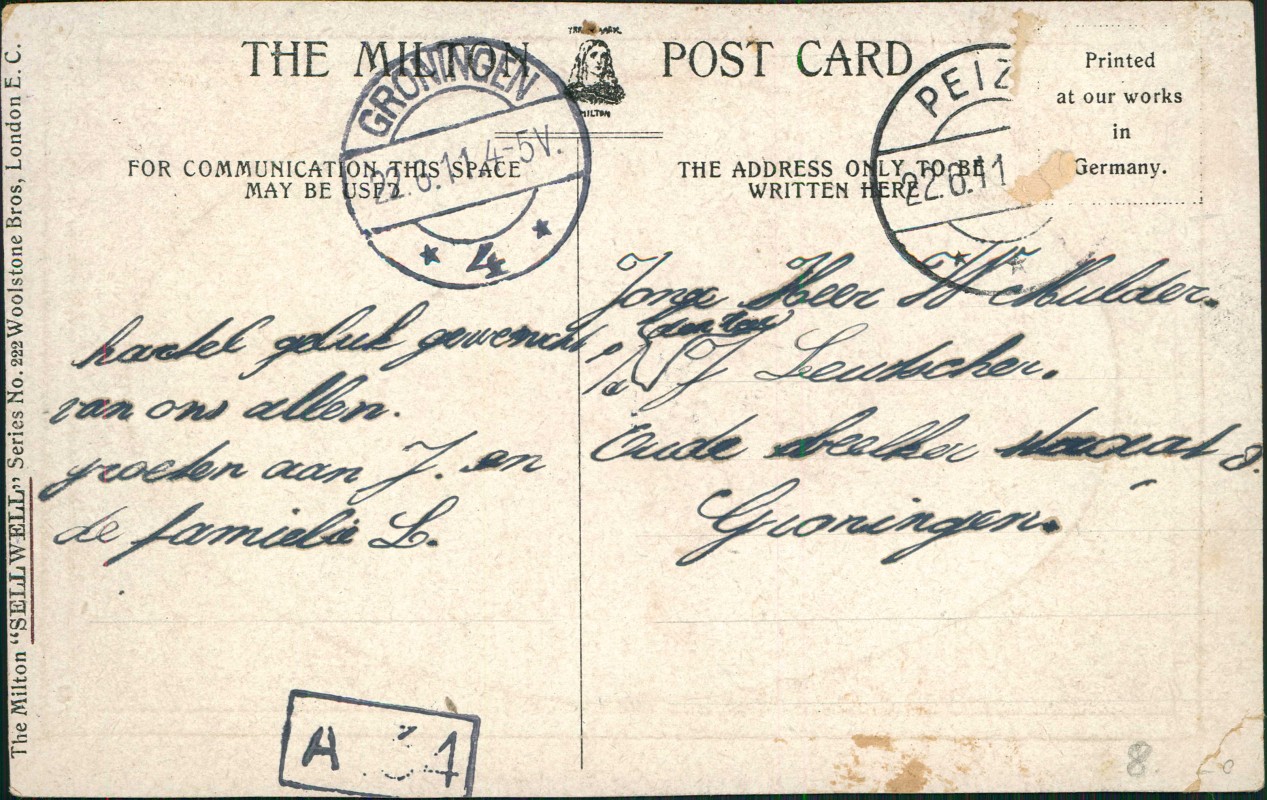 THE MILTON POST CARD
TRADE MARK
MILTON
Printed
at our works
in
Germany.
FOR COMMUNICATION THIS SPACE
MAY BE USED
THE ADDRESS ONLY TO BE
WRITTEN HERE
GRONINGEN
22.6.11 4-5V.
4
PEIZ
22.6.11
hartel geluk gewenscht
van ons allen.
groeten aan J. en
de famielie L.
Jong Heer W Mulder.
J Leutscher.
Oude straat 8.
Groningen.
The Milton "SELLWELL" Series No. 222 Woolstone Bros, London E. C.
A 1
8